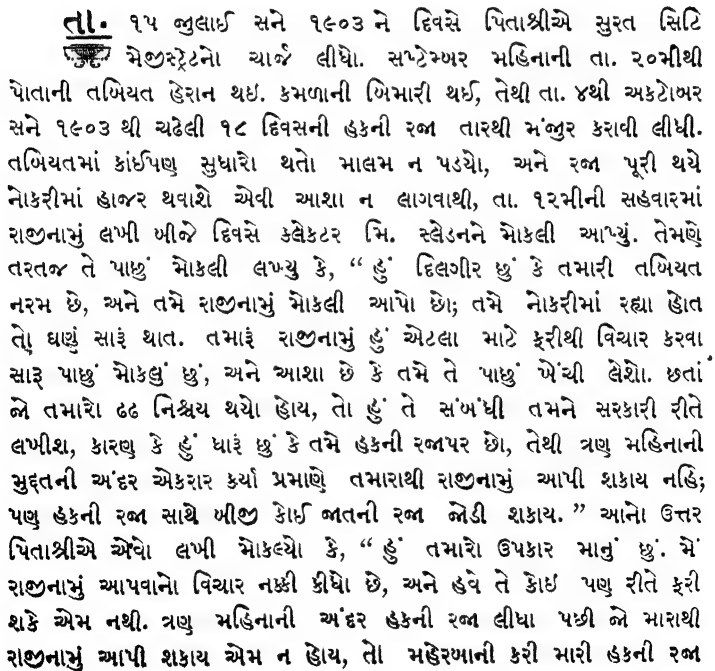 તા. ૧૫ જુલાઈ સને ૧૯૦૩ ને દિવસે પિતાશ્રીએ સુરત સિટિ
મેજીસ્ટ્રેટનો ચાર્જ લીધો. સપ્ટેમ્બર મહિનાની તા. ૨૦મીથી
પોતાની તબિયત હેરાન થઇ. કમળાની બિમારી થઈ, તેથી તા. ૪થી અકટોબર
સને ૧૯૦૩ થી ચઢેલી ૧૮ દિવસની હકની રજા તારથી મંજુર કરાવી લીધી.
તબિયતમાં કાંઈપણ સુધારો થતો માલમ ન પડયો, અને રજા પૂરી થયે
નોકરીમાં હાજર થવાશે એવી આશા ન લાગવાથી, તા. ૧૨મીની સહવારમાં
રાજીનામું લખી બીજે દિવસે કલેકટર મિ. સ્લેડનને મોકલી આપ્યું. તેમણે
તરતજ તે પાછું મોકલી લખ્યુ કે, “ હું દિલગીર છું કે તમારી તબિયત
નરમ છે, અને તમે રાજીનામું મોકલી આપો છો; તમે નોકરીમાં રહ્યા હોત
તો ઘણું સારૂં થાત. તમારૂં રાજીનામું હું એટલા માટે ફરીથી વિચાર કરવા
સારૂ પાછું મોકલું છું, અને આશા છે કે તમે તે પાછું ખેંચી લેશો. છતાં
જો તમારો દ્રઢ નિશ્ચય થયો હોય, તો હું તે સંબંધી તમને સરકારી રીતે
લખીશ, કારણ કે હું ધારૂં છું કે તમે હકની રજાપર છો, તેથી ત્રણ મહિનાની
મુદ્દતની અંદર એકરાર કર્યા પ્રમાણે તમારાથી રાજીનામું આપી શકાય નહિ;
પણ હકની રજા સાથે બીજી કોઈ જાતની રજા જોડી શકાય. ” આનો ઉત્તર
પિતાશ્રીએ એવો લખી મોકલ્યો કે, “ હું તમારો ઉપકાર માનું છું. મેં
રાજીનામું આપવાનો વિચાર નક્કી કીધો છે, અને હવે તે કોઇ પણ રીતે ફરી
શકે એમ નથી. ત્રણ મહિનાની અંદર હકની રજા લીધા પછી જો મારાથી
રાજીનામું આપી શકાય એમ ન હોય, તો મહેરબાની કરી મારી હકની રજા